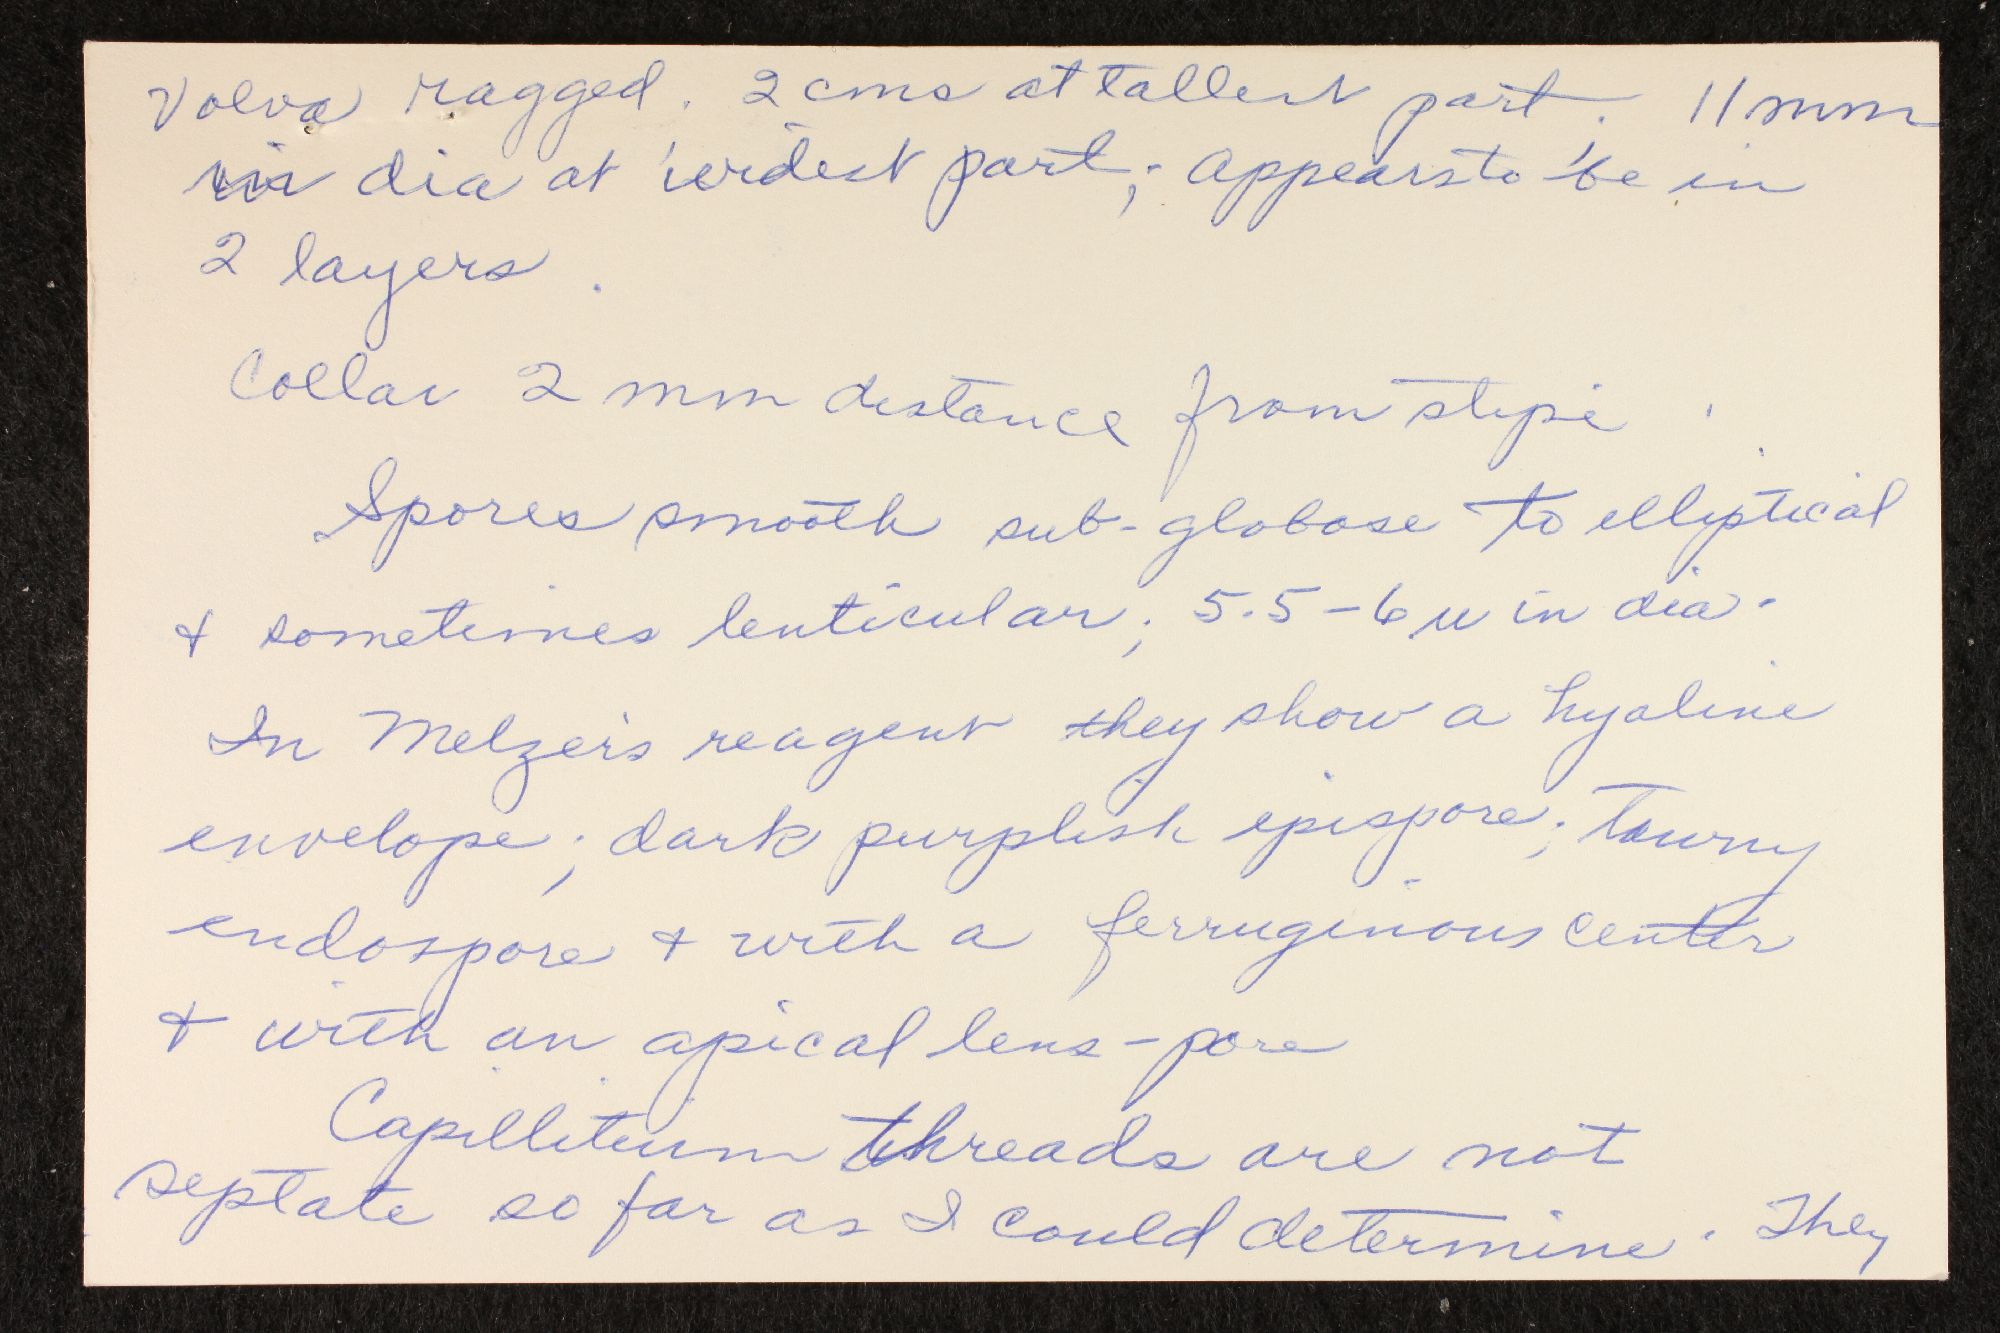 Volva ragged. 2 cms at tallest part. 11 mm
in dia at widest part; appears to be in
2 layers.
Collar 2 mm distance from stipe.
Spores smooth sub-globose to elliptical
& sometimes lenticular; 5.5-6 u in dia.
In Melzer's reagent they show a hyaline
envelope; dark purplish epispore; tawny
endospore & with a ferruginous center
& with an apical lens-pore
Capillitium threads are not
septate so far as I could determine. They